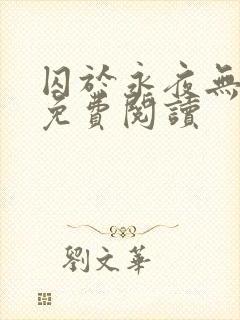 囚於永夜無
免費閱讀
劉文華